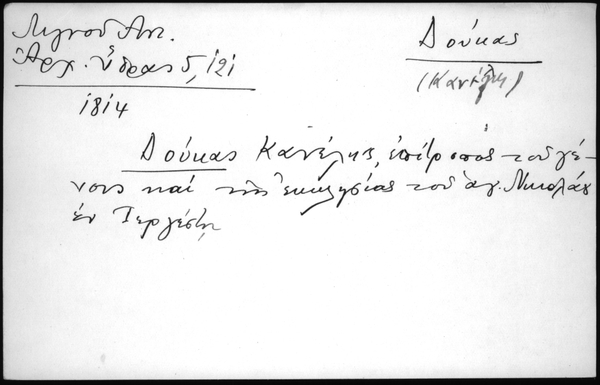 Λιγνοῦ Ἀντ.
Ἀρχ. Ὕδρας 5, 121
1814
Δούκας
(Κανέλης)
Δούκας Κανέλης, ἐπίτροπος τοῦ γέ-
νους καί τῆς ἐκκλησίας τοῦ ἁγ. Νικολάου
ἐν Τεργέστῃ